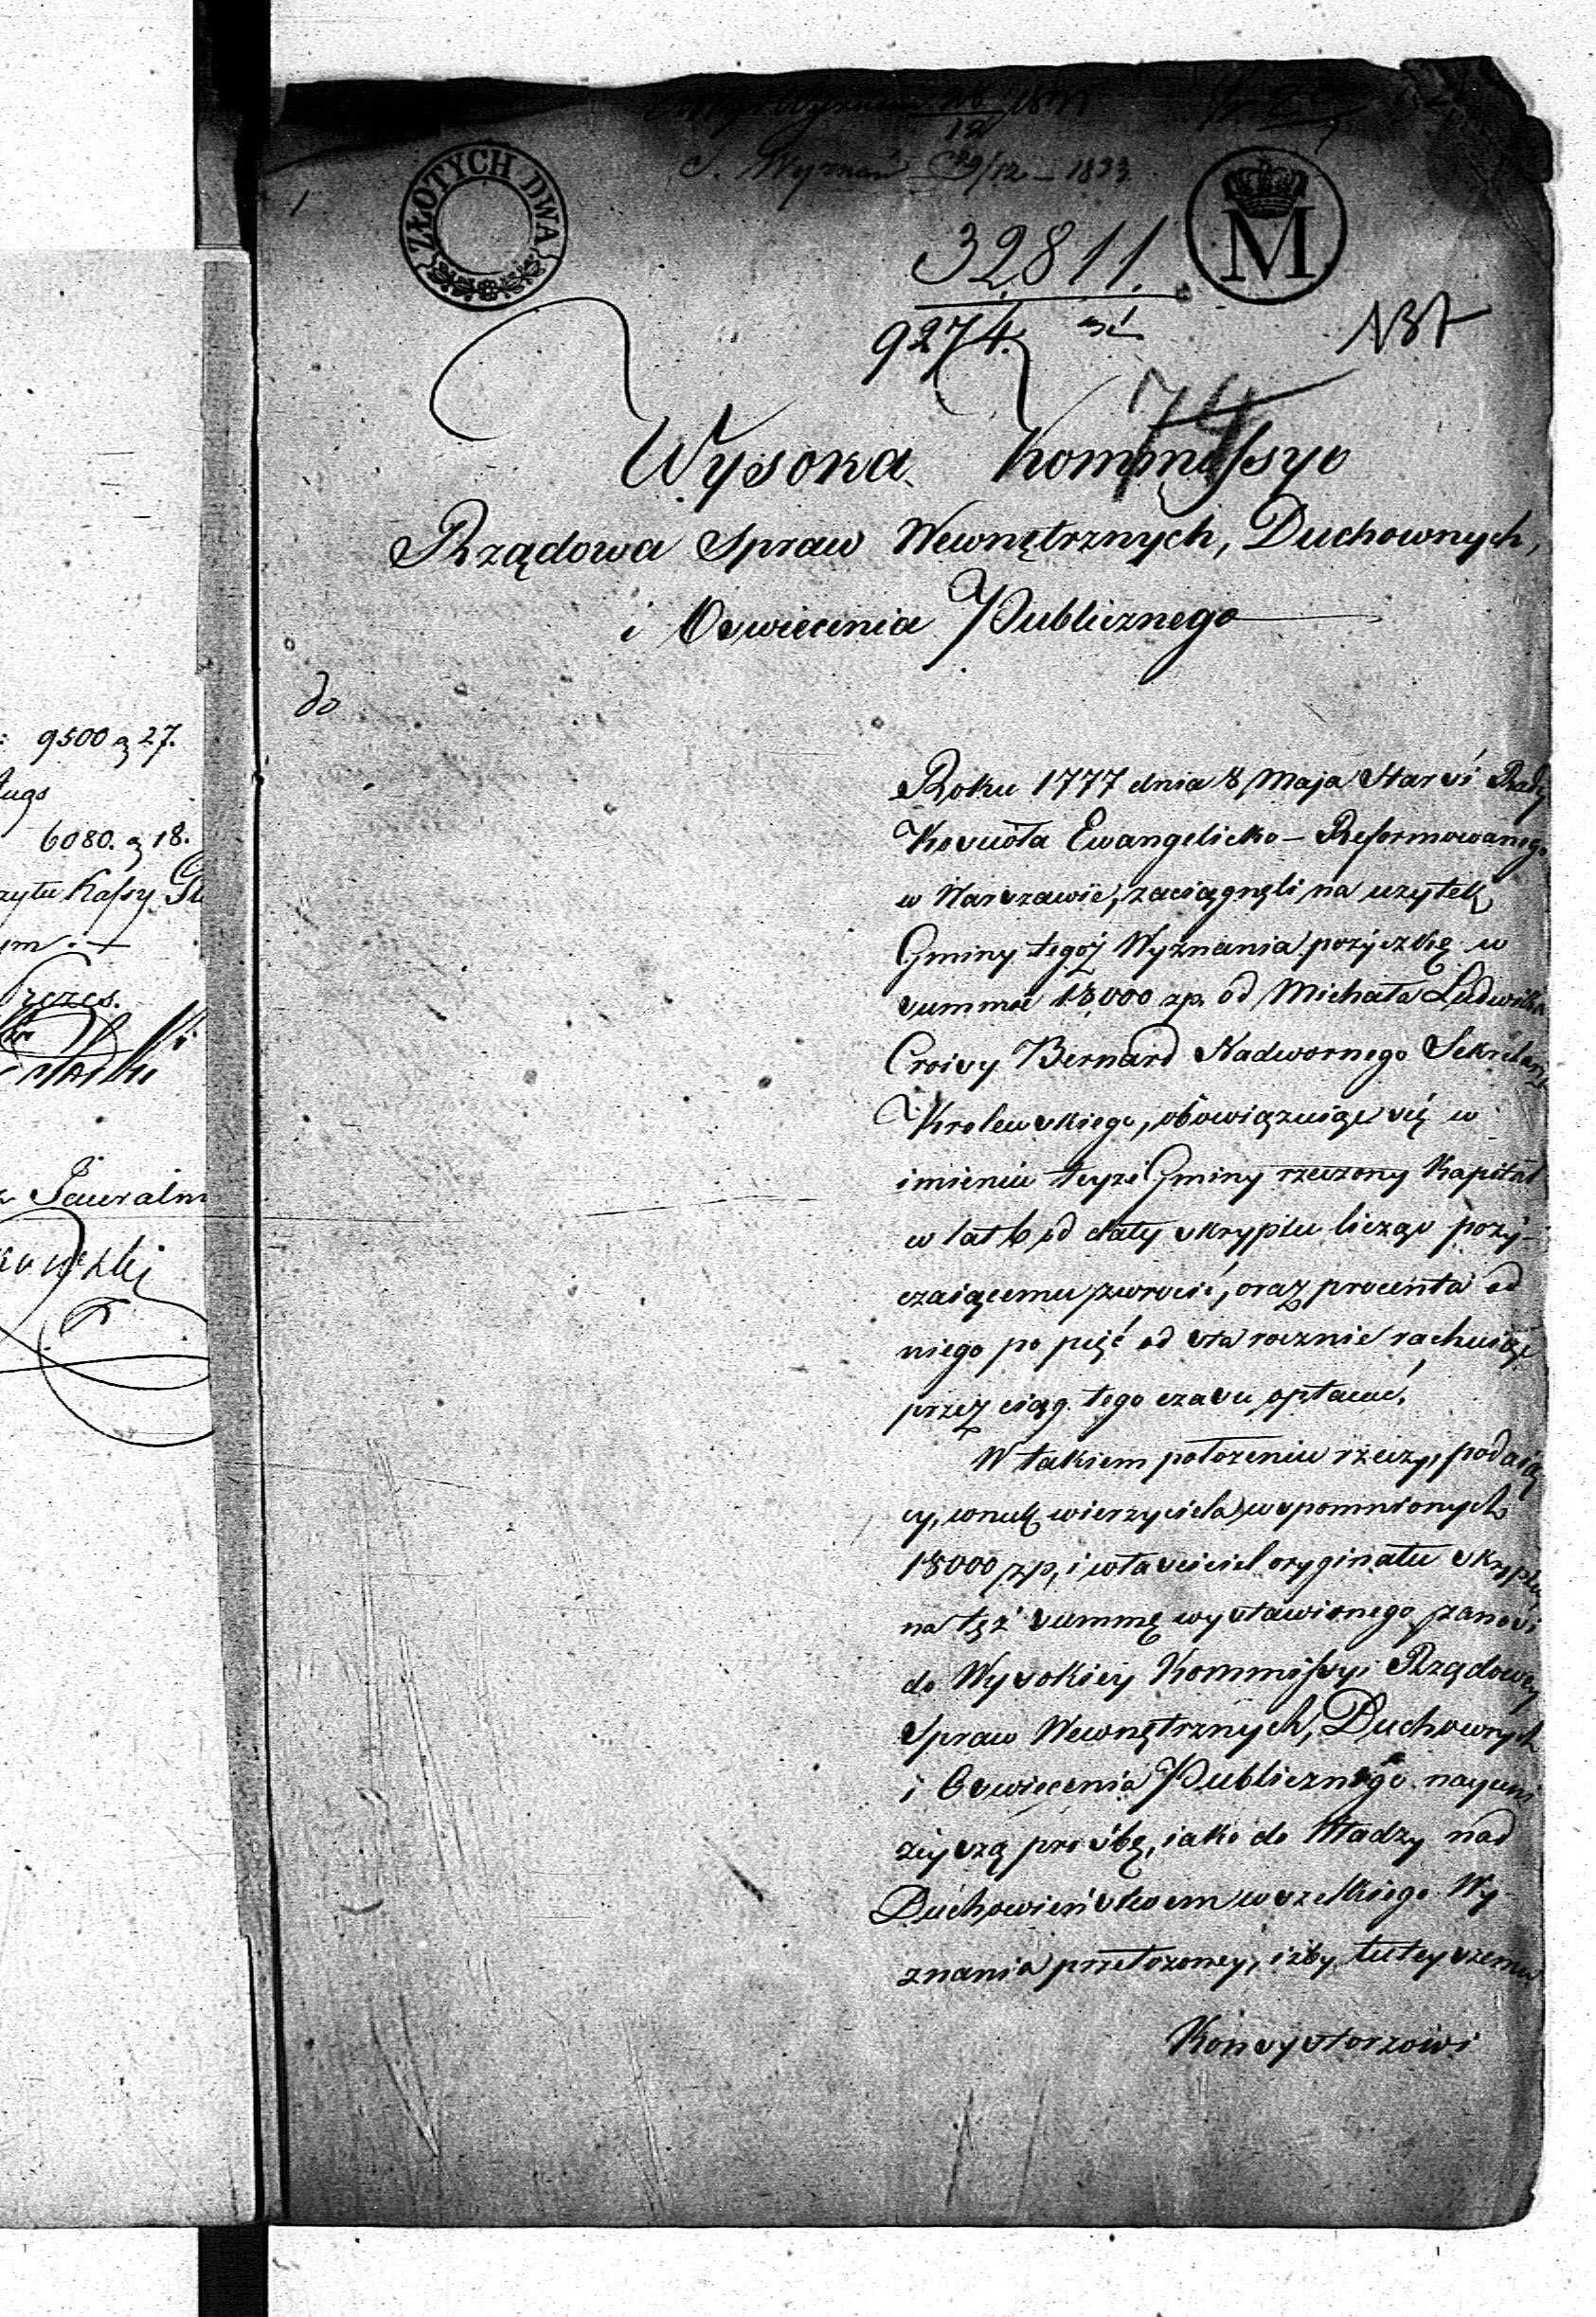 9500 g 27.
6080. g 18.
Kassy
Prezes.
S. Wyznań 29/12 – 1833
1
ZŁOTYCH DWA
M
32811.
9274.
137
74
Wysoka Kommissyo
Rządowa Spraw Wewnętrznych, Duchownych,
i Oswiecenia Publicznego
do
Roku 1777 dnia 8 Maja Starsi Rady
Koscioła Ewangelicko – Reformowanego
w Warszawie, zaciągnęli na uzytek
Gminy tegoż Wyznania pożyczkę w
summie 18,000 zp. od Michała Ludwika
Bernard Nadwornego Sekretarza
Krolewskiego, obowiązuiąc się w
imieniu teyże Gminy rzeczony Kapitał
w lat 6 od daty skryptu licząc poży-
czaiącemu zwrócić, oraz procenta od
niego po pięć od sta rocznie rachuiąc
przez ciąg tego czasu opłacać.
W takiem położeniu rzeczy, podaią
cy, wnuk wierzyciela wspomnionych
18000 zp, i właściciel oryginału skryptu
na tęż summę wystawionego zanosi
do Wysokiey Kommissyi Rządowey
Spraw Wewnętrznych, Duchownych
i Oswiecenia Publicznego nayuni
żeyszą prośbę, iako do Władzy nad
Duchowieństwem wszelkiego Wy-
znania przełożoney, iżby tuteyszemu
Konsystorzowi